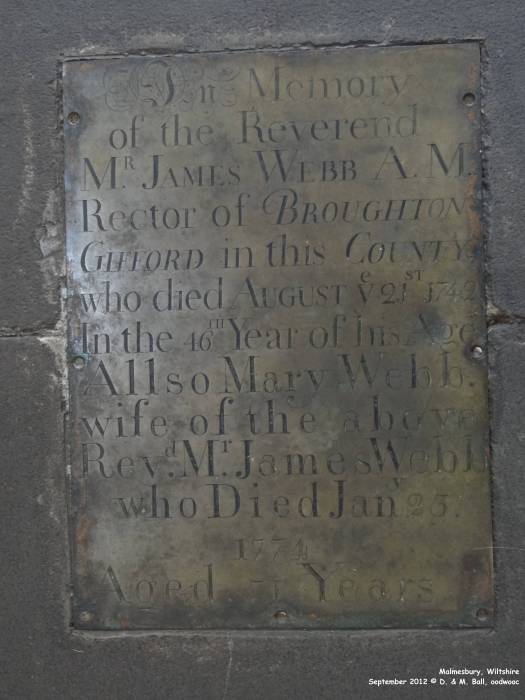 In Memory
of the Reverend
Mr. JAMES WEBB A.M.
Rector of BROUGHTON
GIFFORD in this COUNTY
who died AUGUST ye 21ST 1742
In the 46TH Year of his Age
Allso Mary Webb.
wife of the above
Revd. Mr. James Webb
who Died Jany 23.
1774
Aged 71 Years
Malmesbury, Wiltshire
September 2012 © D. & M. Ball, oodwooc